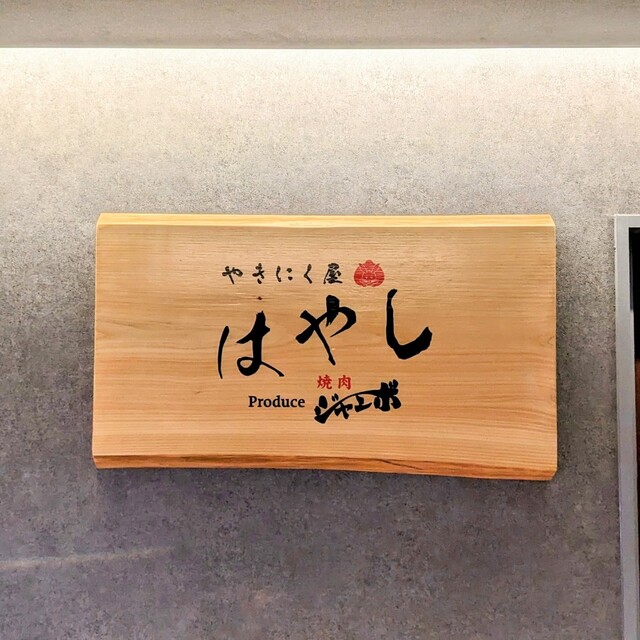 やきにく屋
はやし
焼肉
Produce ジャンボ